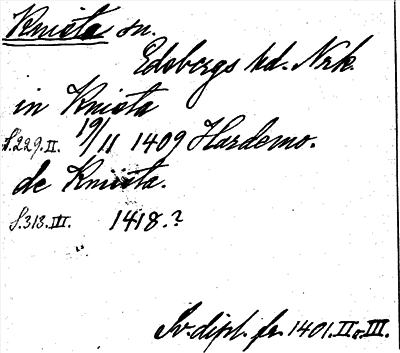 Knista sn.
Edsbergs hd. Nrk.
in Knista
S.229.II. 19/11 1409 Hardemo.
de Kniista.
S.313.III. 1418.?
Sv. dipl. fr. 1401. II o. III.